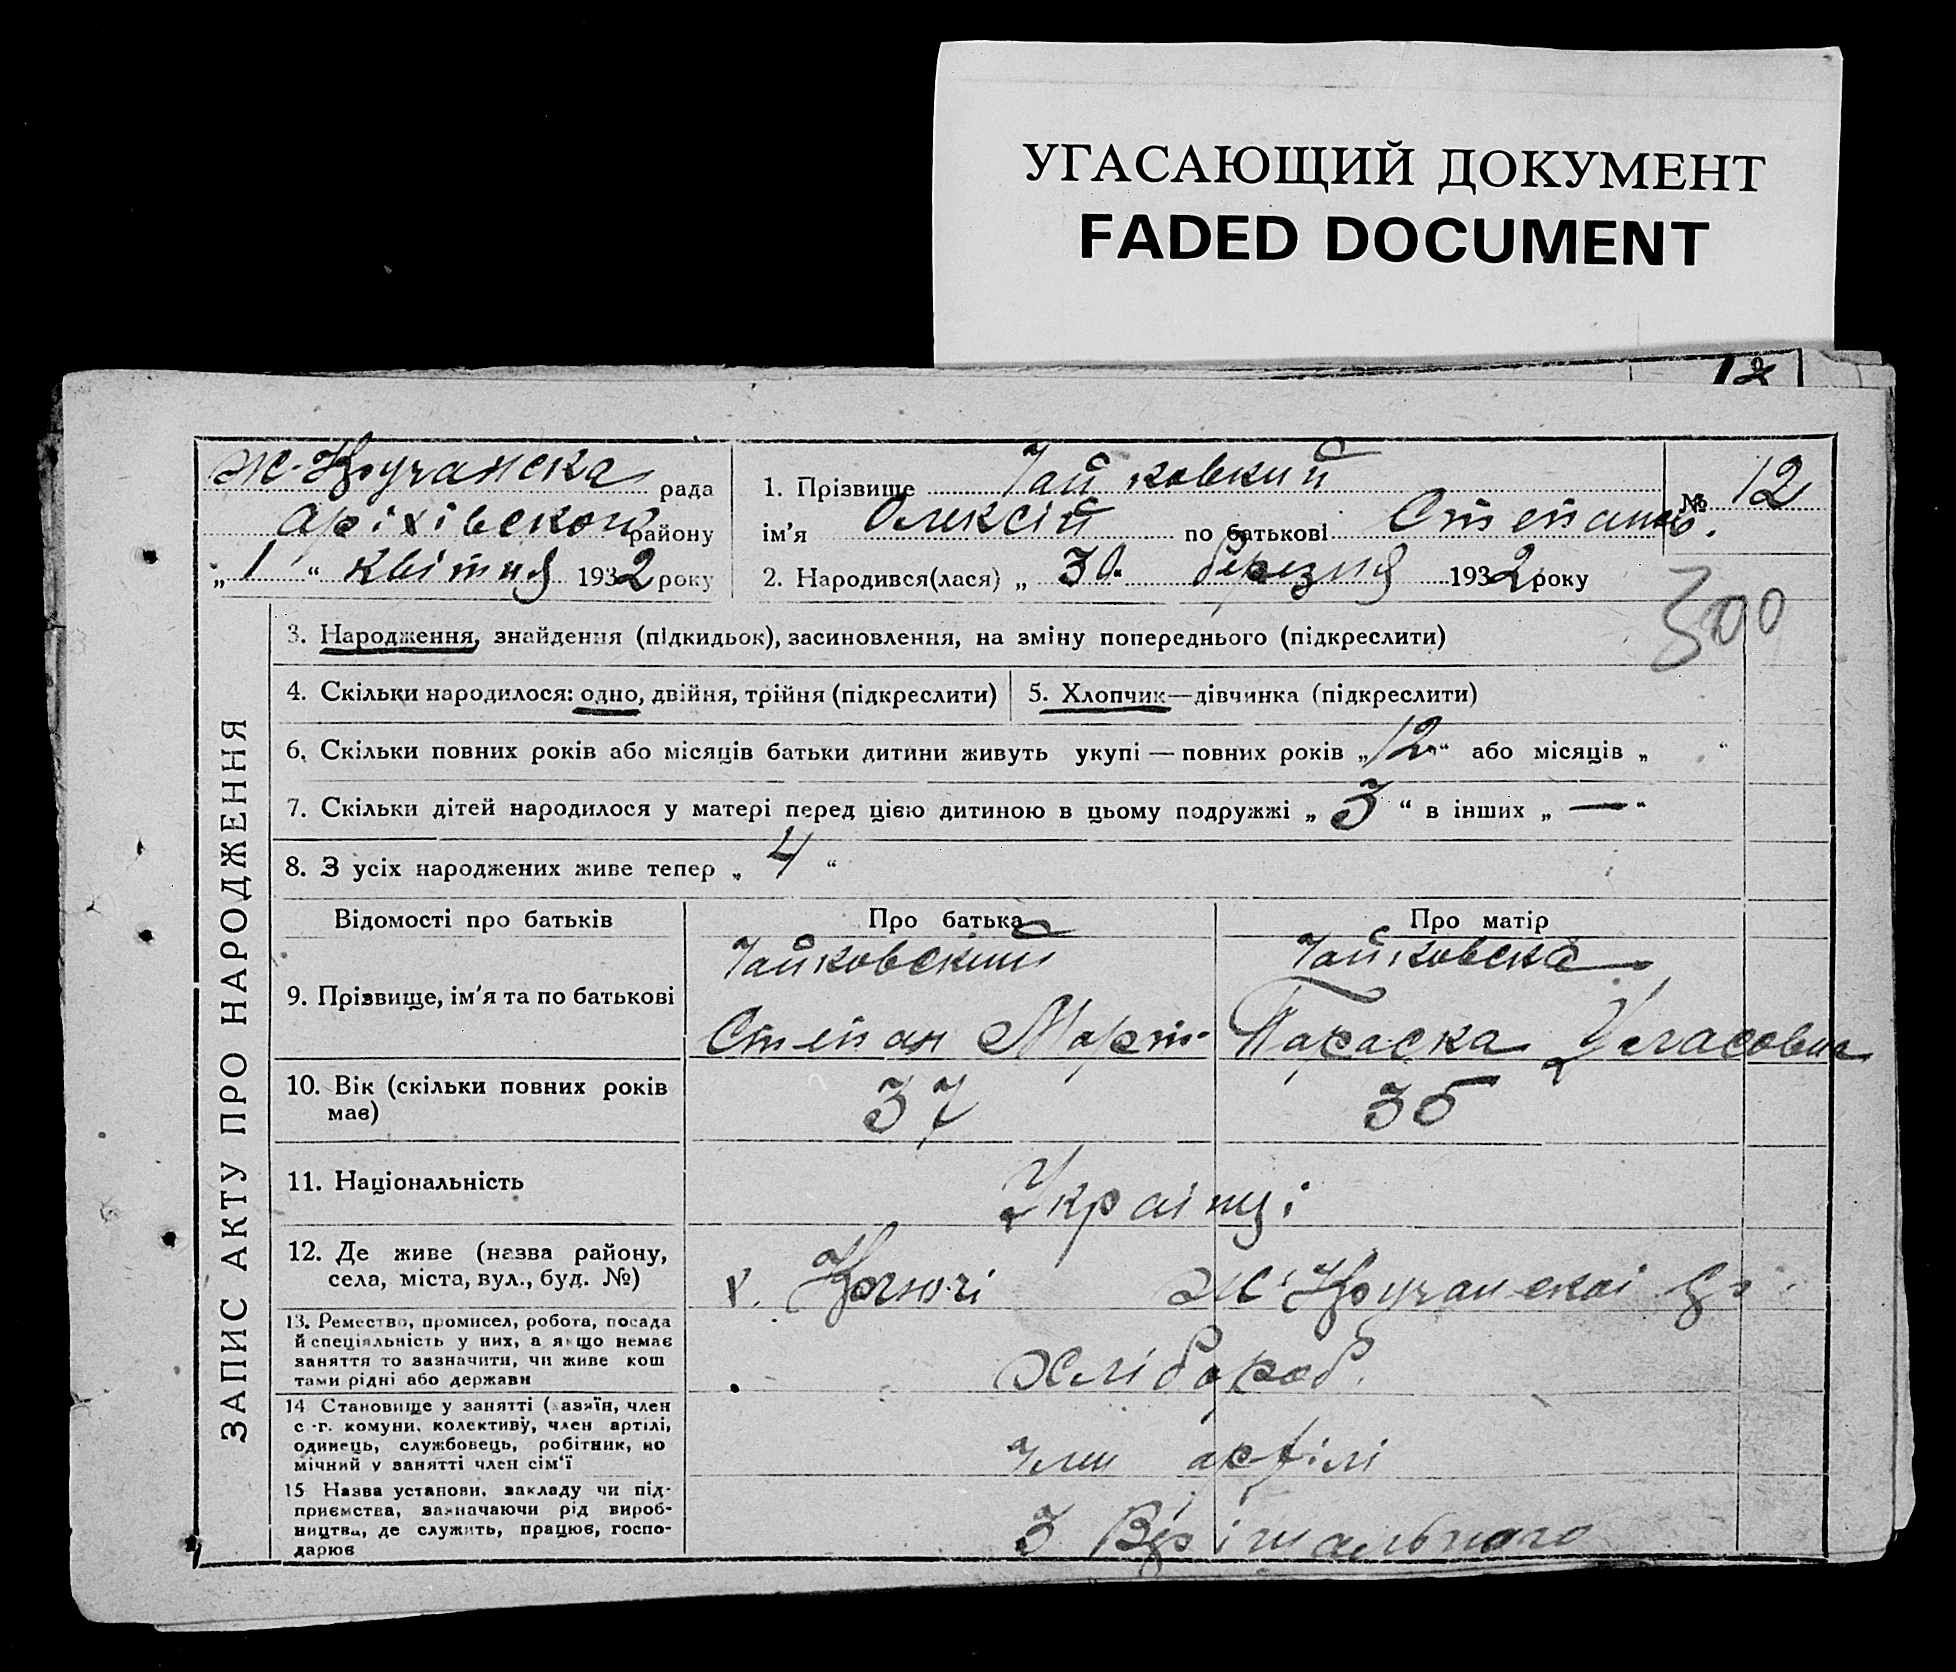 УГАСАЮЩИЙ ДОКУМЕНТ
FADED DOCUMENT
12
рада
Оріхівского району
„ 1 “ квітня 1932 року
1. Прізвище Чайковский
№ 12
ім'я Олексій по батькові Степанов.
2. Народився(лася) „ 30 березня 1932 року
300
ЗАПИС АКТУ ПРО НАРОДЖЕННЯ
3. Народження, знайдення (підкидьок), засиновлення, на зміну попереднього (підкреслити)
4. Скільки народилося: одно, двійня, трійня (підкреслити)
5. Хлопчик—дівчинка (підкреслити)
6. Скільки повних років або місяців батьки дитини живуть укупі — повних років „ 12 “ або місяців „ “
7. Скільки дітей народилося у матері перед цією дитиною в цьому подружжі „ 3 “ в інших „ — “
8. З усіх народжених живе тепер „ 4 “
Відомості про батьків
Про батька
Про матір
9. Прізвище, ім'я та по батькові
Чайковский
Степан Март.
Чайковска
Параска Уласовна
10. Вік (скільки повних років
має)
37
35
11. Національність
Українці
12. Де живе (назва району,
села, міста, вул., буд. №)
х.
13. Ремество, промисел, робота, посада
й спеціяльність у них, а якщо немає
заняття то зазначити, чи живе кош
тами рідні або держави
Хлібороб.
14 Становище у занятті (хазяїн, член
с.-г. комуни, колективу, член артілі,
одинець, службовець, робітник, по
мічний у занятті член сім'ї
член артілі
15 Назва установи, закладу чи під-
приємства, зазначаючи рід вироб-
ництва, де служить, працює, госпо-
дарює
З